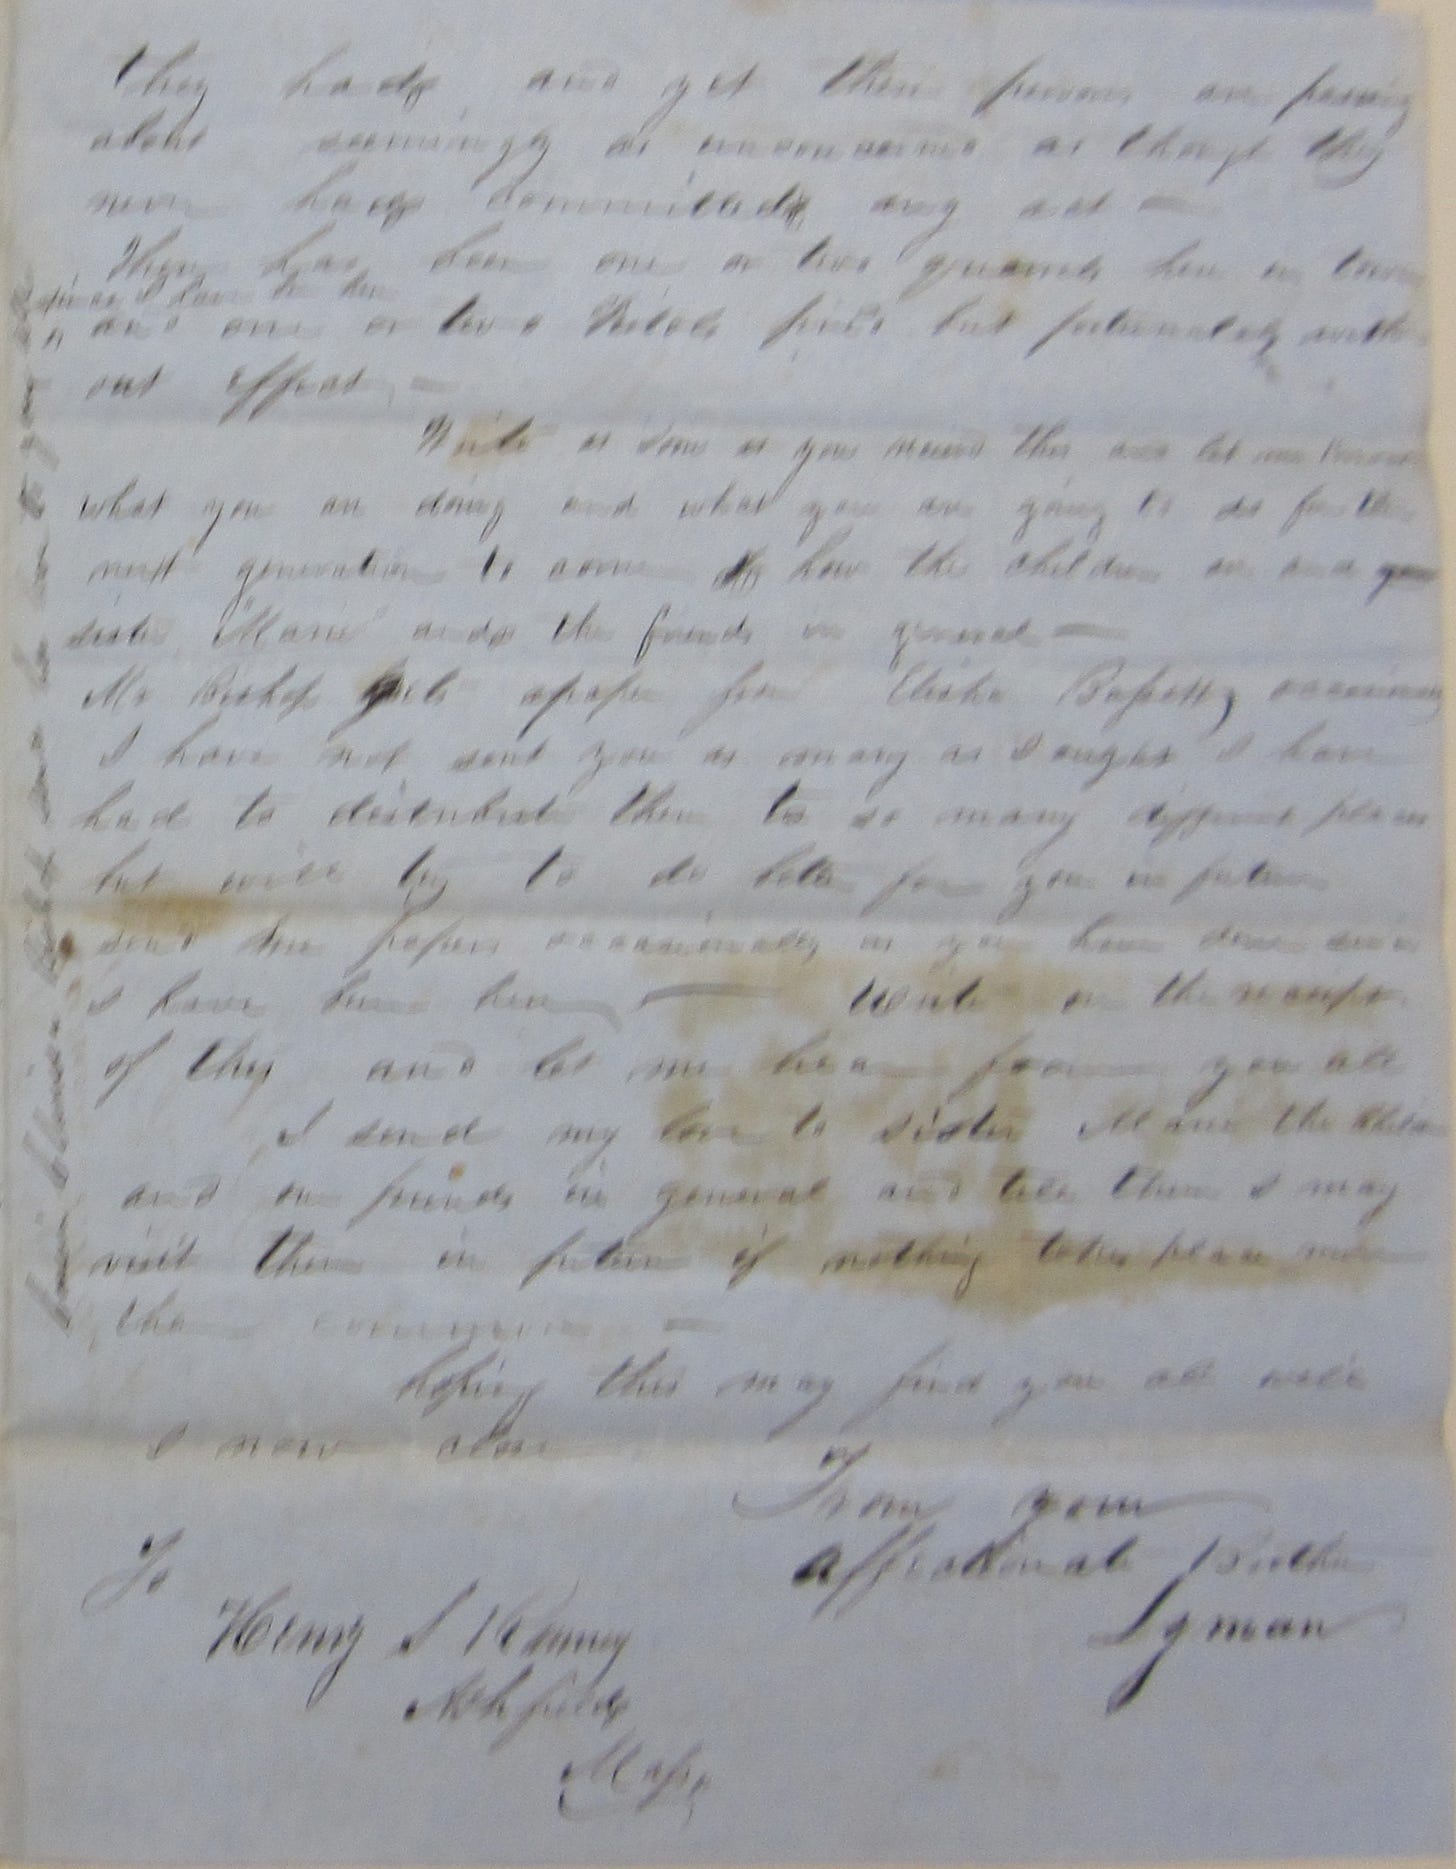 they had and yet these persons are passing
about seemingly as unconcerned as though they
never had committed any act —
There has been one or two quarrels here in town
since I have been here
and one or two Pistols fired but fortunately with
out effect, —
Write as soon as you receive this and let me know
what you are doing and what you are going to do for the
next generation to come how the children are and your
sister "Marie" and the friends in general —
Mr Bishop gets a paper from Elisha Bassett, occasionally
I have not sent you as many as I ought I have
had to distribute them to so many different places
but will try to do better for you in future
send me papers occasionally as you have done since
I have been here — Write on the receipt
of this and let me hear from you all
I send my love to sister Marie the children
and our friends in general and tell them I may
visit them in future if nothing takes place more
than common —
hoping this may find you all well
I now close
From your
Affectionate Brother
Lyman
To
Henry S Ranney
Ashfield
Mass